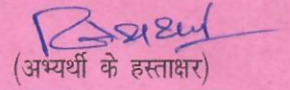 (अभ्यर्थी के हस्ताक्षर)